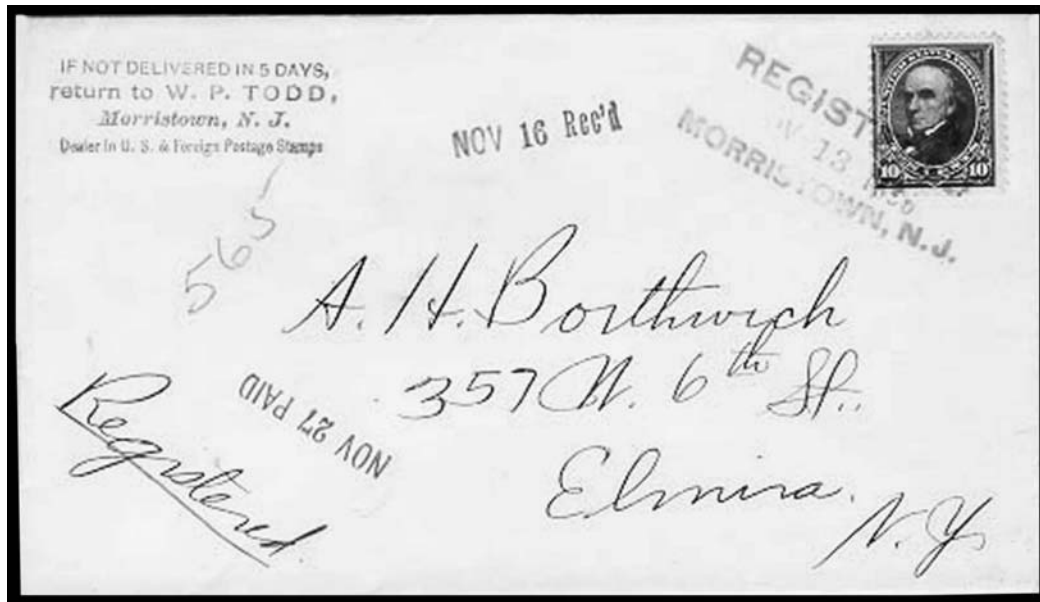 IF NOT DELIVERED IN 5 DAYS,
return to W. P. TODD,
Morristown, N. J.
Dealer in U. S. & Foreign Postage Stamps
NOV 16 Rec'd
REGIST
13
MORRISTOWN, N.J.
10 10
565
A. H. Borthwich
357 W. 6th St.
Elmira.
N.Y
NOV 27 PAID
Registered.